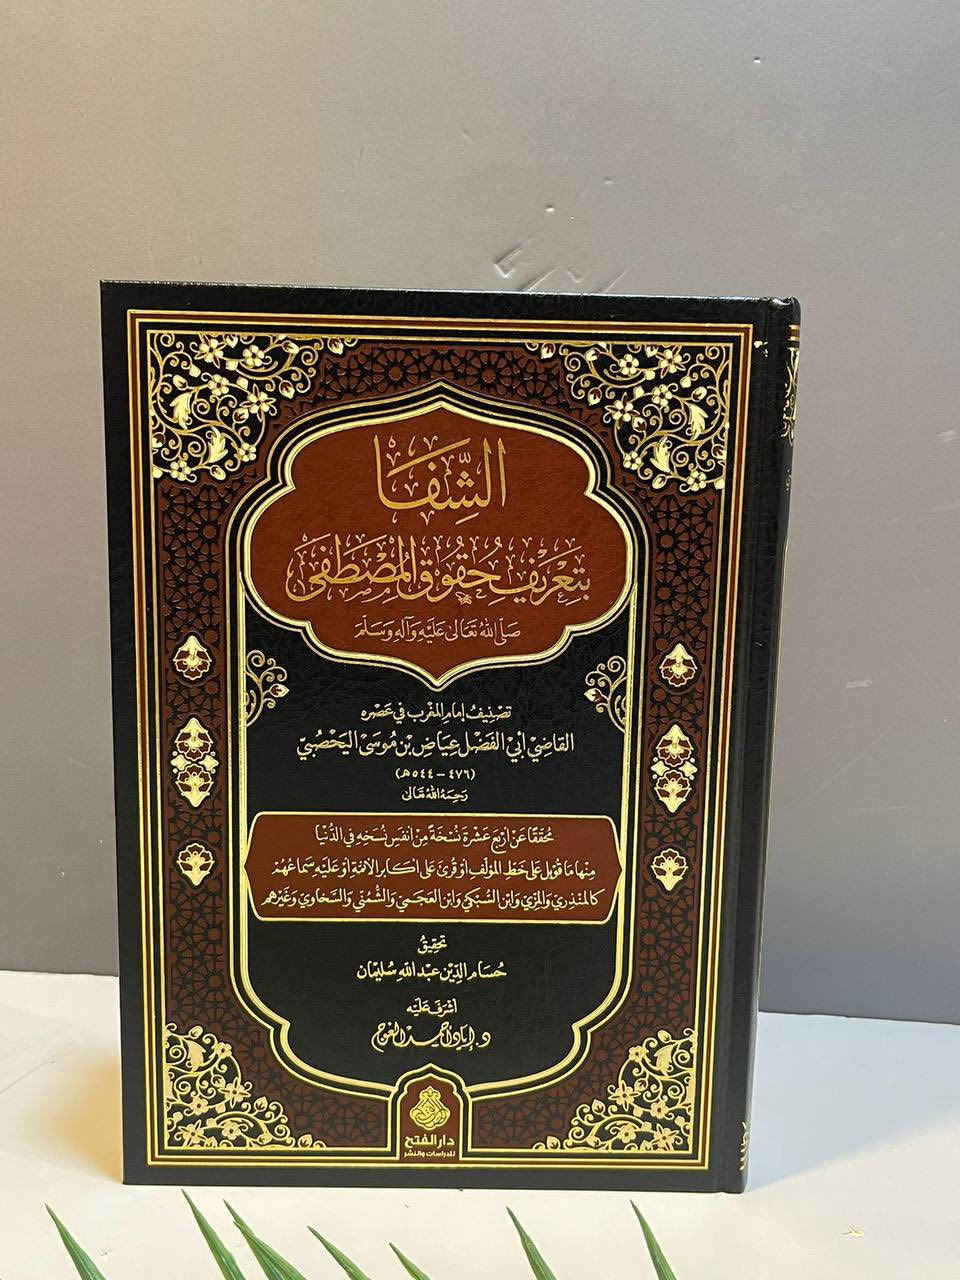 الشِّفَا
بِتَعْرِيفِ حُقُوقِ المُصْطَفَى
صَلَّى اللهُ تَعَالَى عَلَيْهِ وَآلِهِ وَسَلَّمَ
تَصْنِيفُ إِمَامِ المَغْرِبِ فِي عَصْرِهِ
القَاضِي أَبِي الفَضْلِ عِيَاضِ بْنِ مُوسَى اليَحْصُبِيّ
(٤٧٦ - ٥٤٤هـ)
رَحِمَهُ اللهُ تَعَالَى
مُحَقَّقًا عَنْ أَرْبَعَ عَشْرَةَ نُسْخَةً مِنْ أَنْفَسِ نُسَخِهِ فِي الدُّنْيَا
مِنْهَا مَا قُوبِلَ عَلَى خَطِّ المُؤَلِّفِ أَوْ قُرِئَ عَلَى أَكَابِرِ الأَئِمَّةِ أَوْ عَلَيْهِ سَمَاعُهُمْ
كَالمُنْذِرِيِّ وَالمِزِّيِّ وَابْنِ السُّبْكِيِّ وَابْنِ العَجَمِيِّ وَالشُّمُنِّيِّ وَالسَّخَاوِيِّ وَغَيْرِهِمْ
تَحْقِيقُ
حُسَامِ الدِّينِ عَبْدِ اللهِ سُلَيْمَان
أَشْرَفَ عَلَيْهِ
د. إياد أحمد الغوج
دار الفتح
للدراسات والنشر